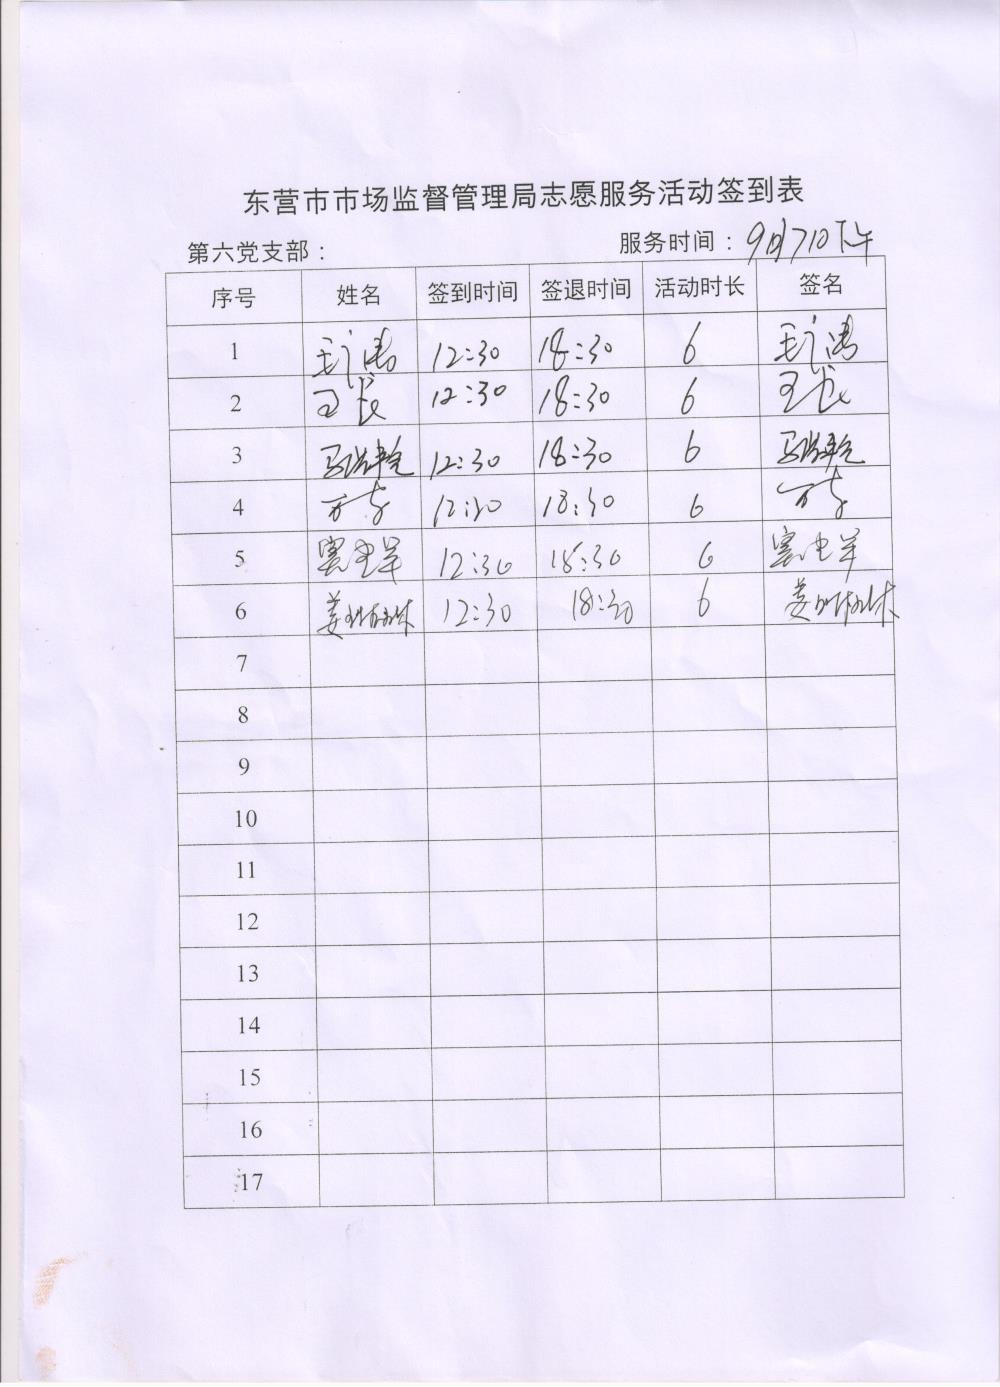 东营市市场监督管理局志愿服务活动签到表
第六党支部： 服务时间：9月7日下午
序号 姓名 签到时间 签退时间 活动时长 签名
1 12:30 18:30 6
2 12:30 18:30 6
3 12:30 18:30 6
4 12:30 18:30 6
5 12:30 18:30 6
6 12:30 18:30 6
7
8
9
10
11
12
13
14
15
16
17